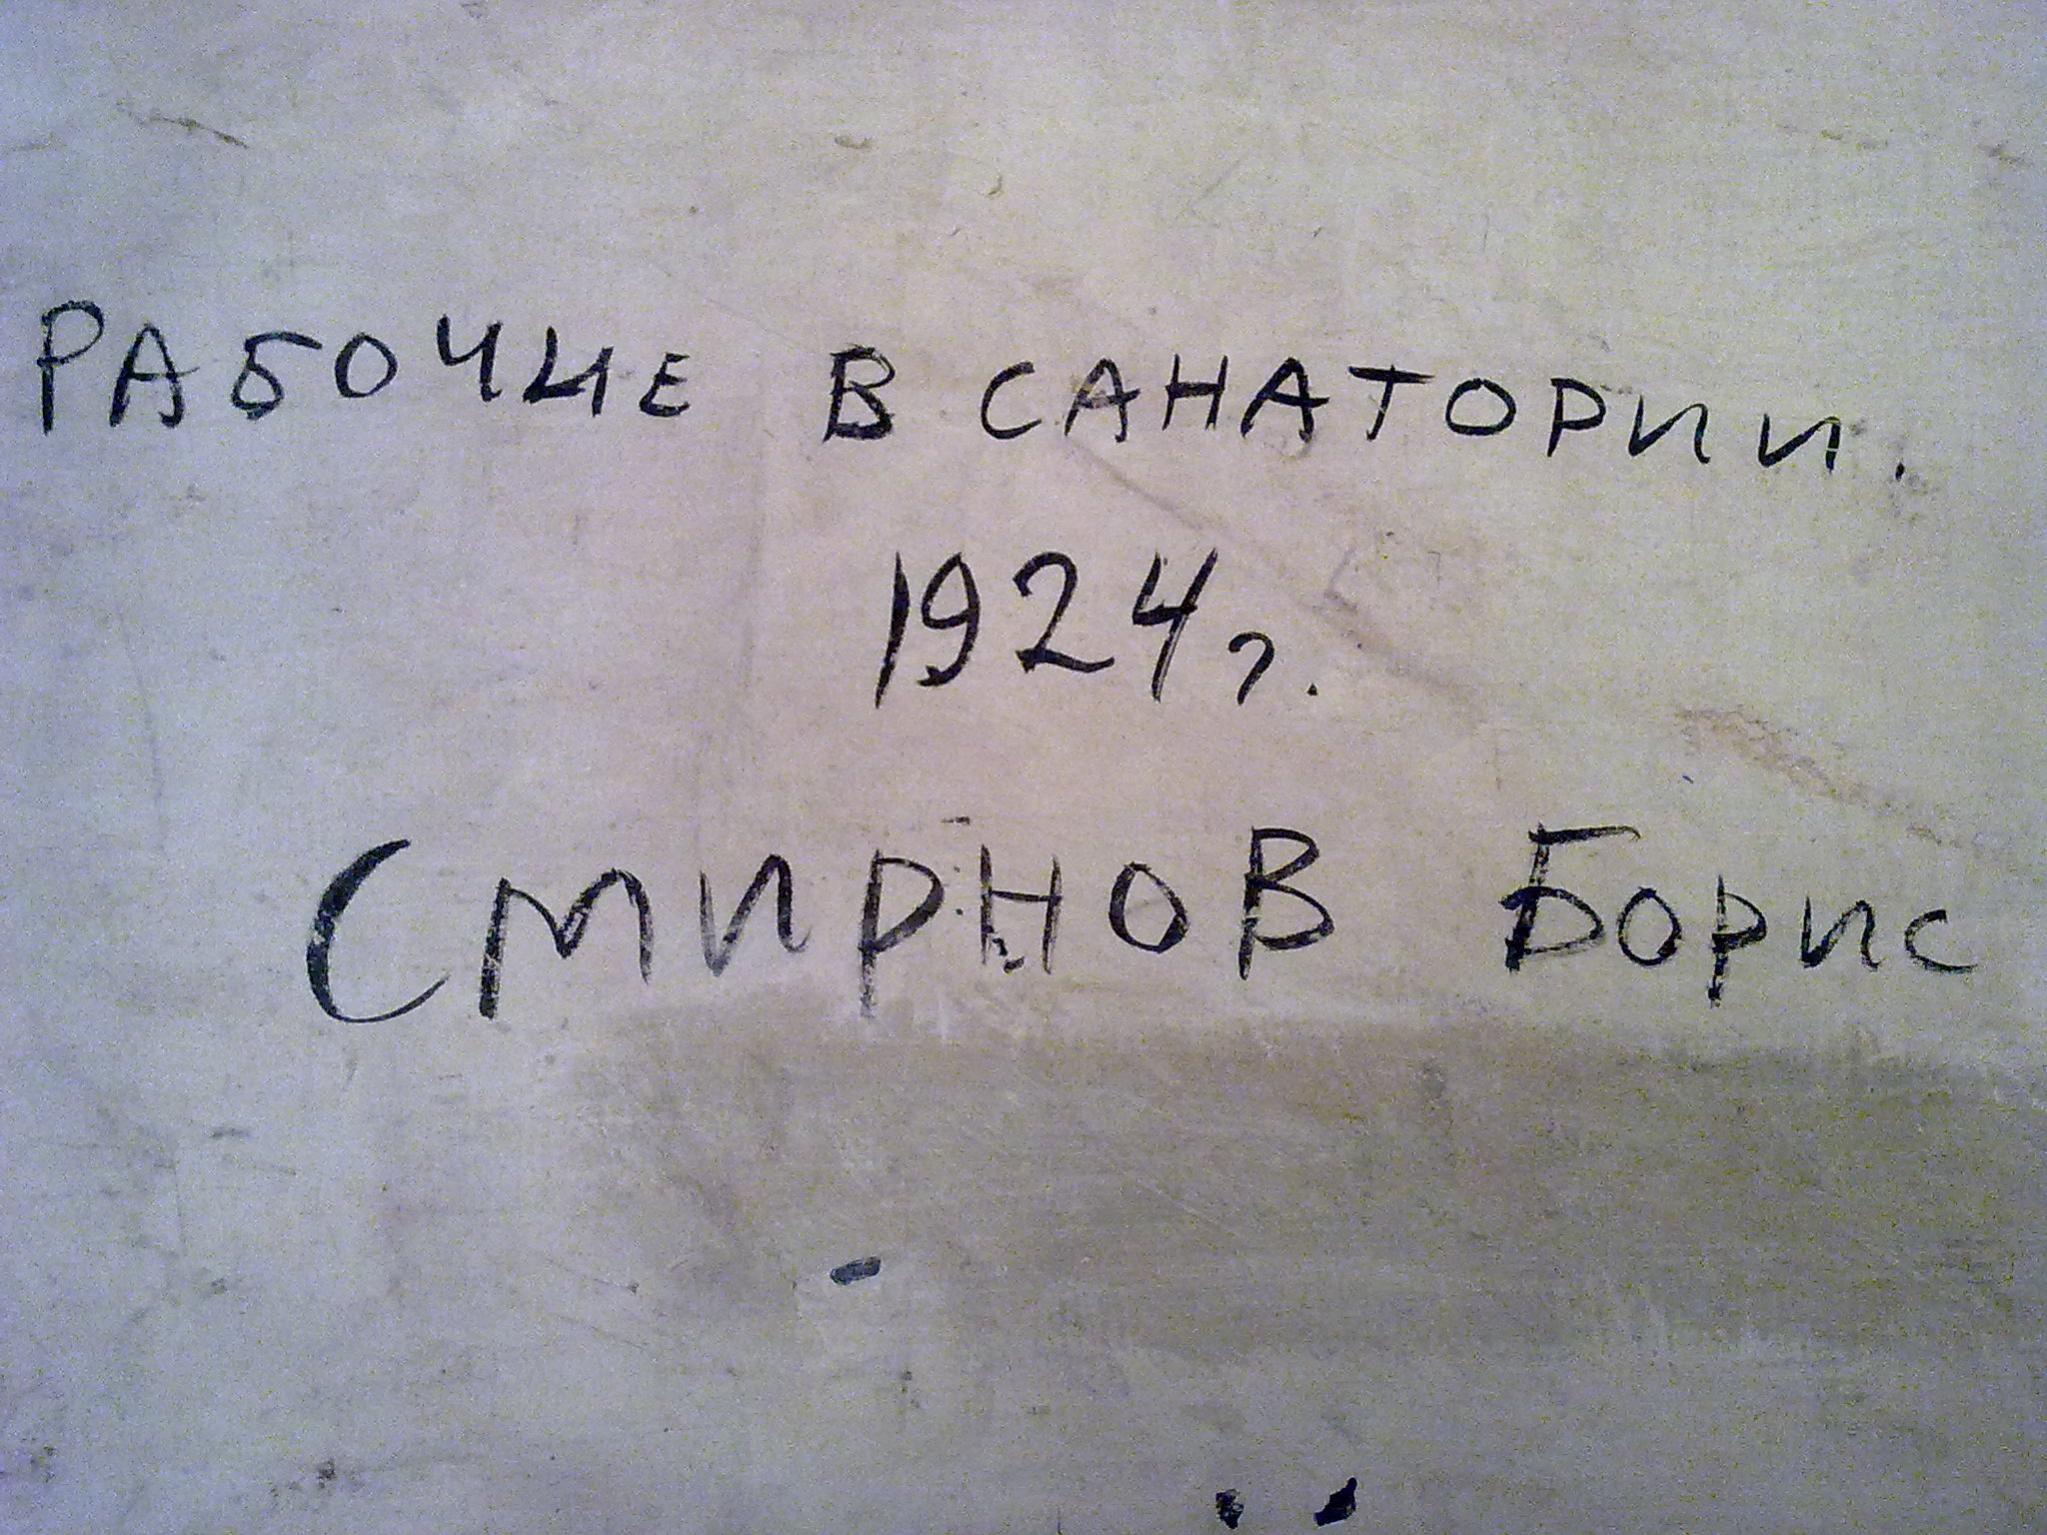 РАБОЧИЕ В САНАТОРИИ.
1924г.
Смирнов Борис